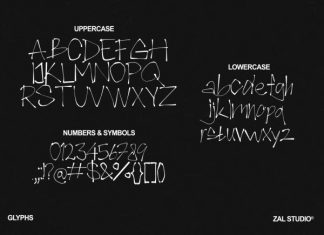 UPPERCASE
ABCDEFGH
IJKLMNOPQ
RSTUVWXYZ
LOWERCASE
abcdefgh
ijklmnopq
rstuvwxyz
NUMBERS & SYMBOLS
0123456789
.,:;?!@#$&%{}[]()
GLYPHS
ZAL STUDIO®